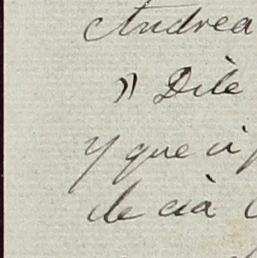 Andrea
» Dile
y que si
decia